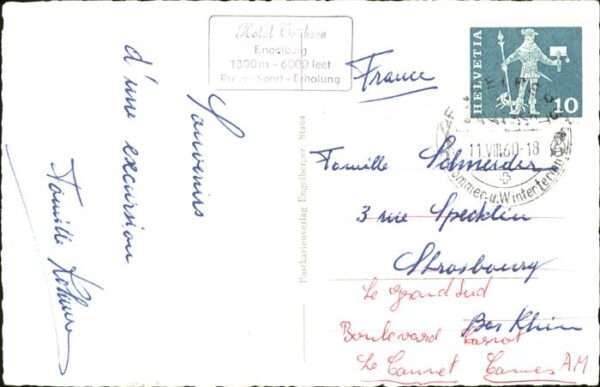 Hotel
Engelberg
1800 m - 6000 feet
Ruhe - Sport - Erholung
Souvenirs
d'une excursion
Famille
Postkartenverlag Engelberger, Stans
HELVETIA
10
11.VIII.60-18
Sommer-u.Winterferien
France
Famille Schneider
3 rue Specklin
Strasbourg
Bas Rhin
Le Grand Sud
Boulevard Carnot
Le Cannet Cannes AM